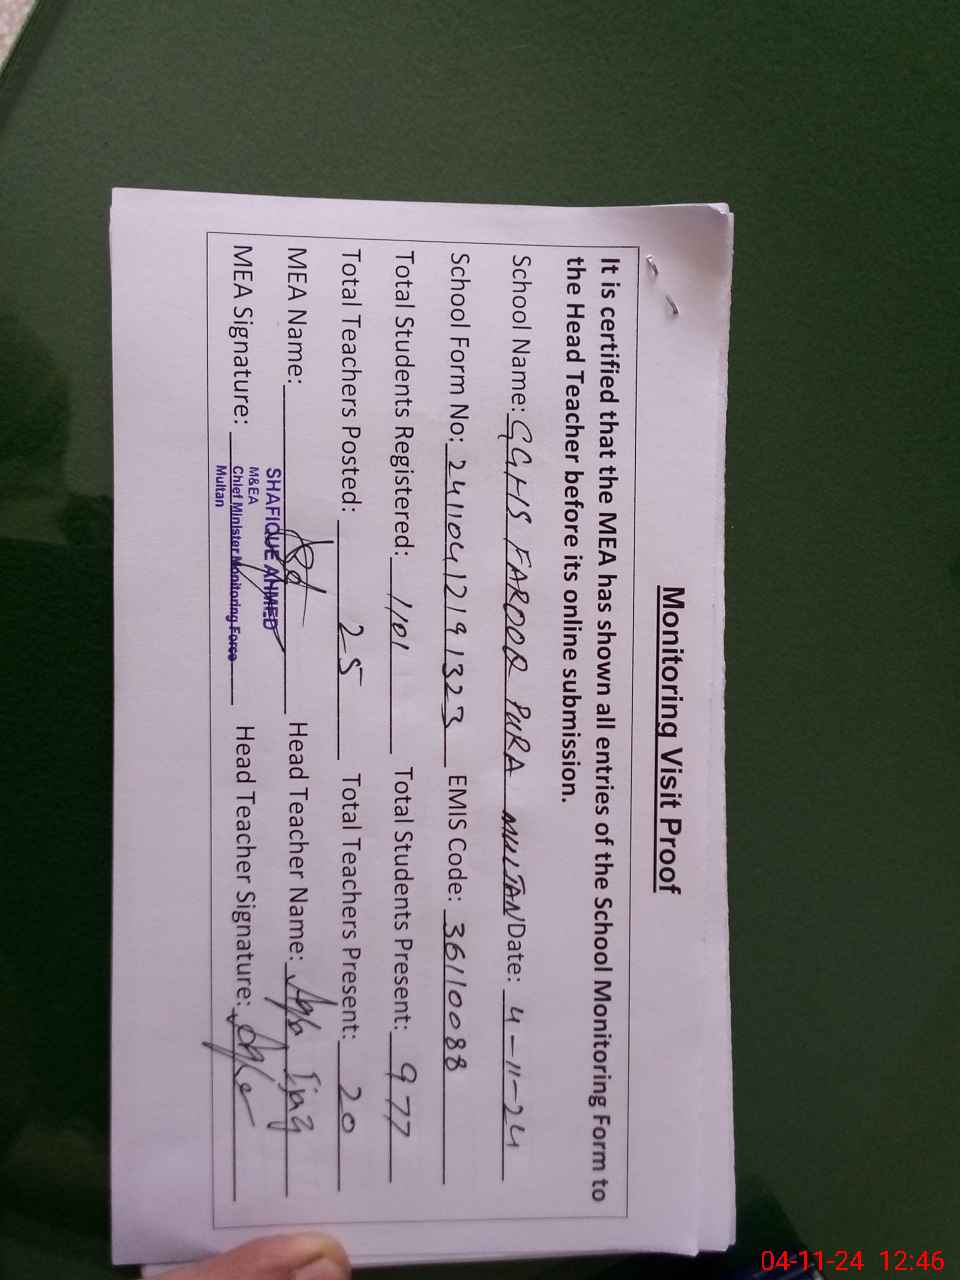 Monitoring Visit Proof
It is certified that the MEA has shown all entries of the School Monitoring Form to
the Head Teacher before its online submission.
School Name: GGHS FAROOQ PURA MULTAN Date: 4-11-24
School Form No: 24110412191323 EMIS Code: 36110088
Total Students Registered: 1101 Total Students Present: 977
Total Teachers Posted: 25 Total Teachers Present: 20
MEA Name: Head Teacher Name:
SHAFIQUE AHMED
M&EA
MEA Signature: Chief Minister Monitoring Force Head Teacher Signature:
Multan
04-11-24 12:46